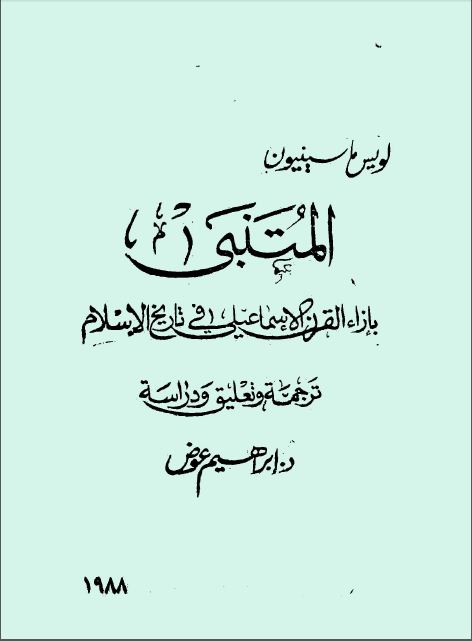 لويس ماسينيون
المتنبى
بإزاء القرن الإسماعيلى فى تاريخ الإسلام
ترجمة وتعليق ودراسة
د. إبراهيم عوض
١٩٨٨